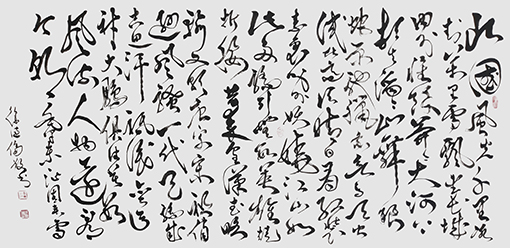 北國風光千里冰
封万里雪飘望长城
内外惟余莽莽大河上
下顿失滔滔山舞银
蛇原驰蜡象欲与天公
试比高须晴日看红装
素裹分外妖娆江山如
此多娇引无数英雄竞
折腰惜秦皇汉武略
输文采唐宗宋祖稍
逊风骚一代天骄成
吉思汗只识弯弓
射大雕俱往矣数
风流人物还看
今朝
沁園春雪